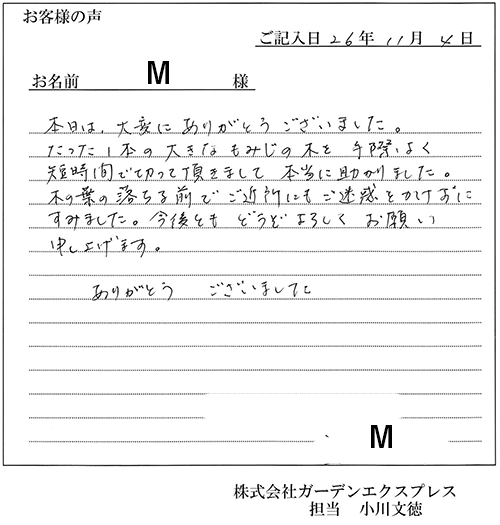 お客様の声
ご記入日 26年 11月 4日
お名前 M 様
本日は、大変に ありがとう ございました。
たった1本の 大きな もみじの 木を 手際よく
短時間で切って頂きまして 本当に助かりました。
木の葉の落ちる前で ご近所にもご迷惑をかけずに
すみました。今後とも どうぞ よろしく お願い
申し上げます。
ありがとう ございました
M
株式会社ガーデンエクスプレス
担当 小川文徳